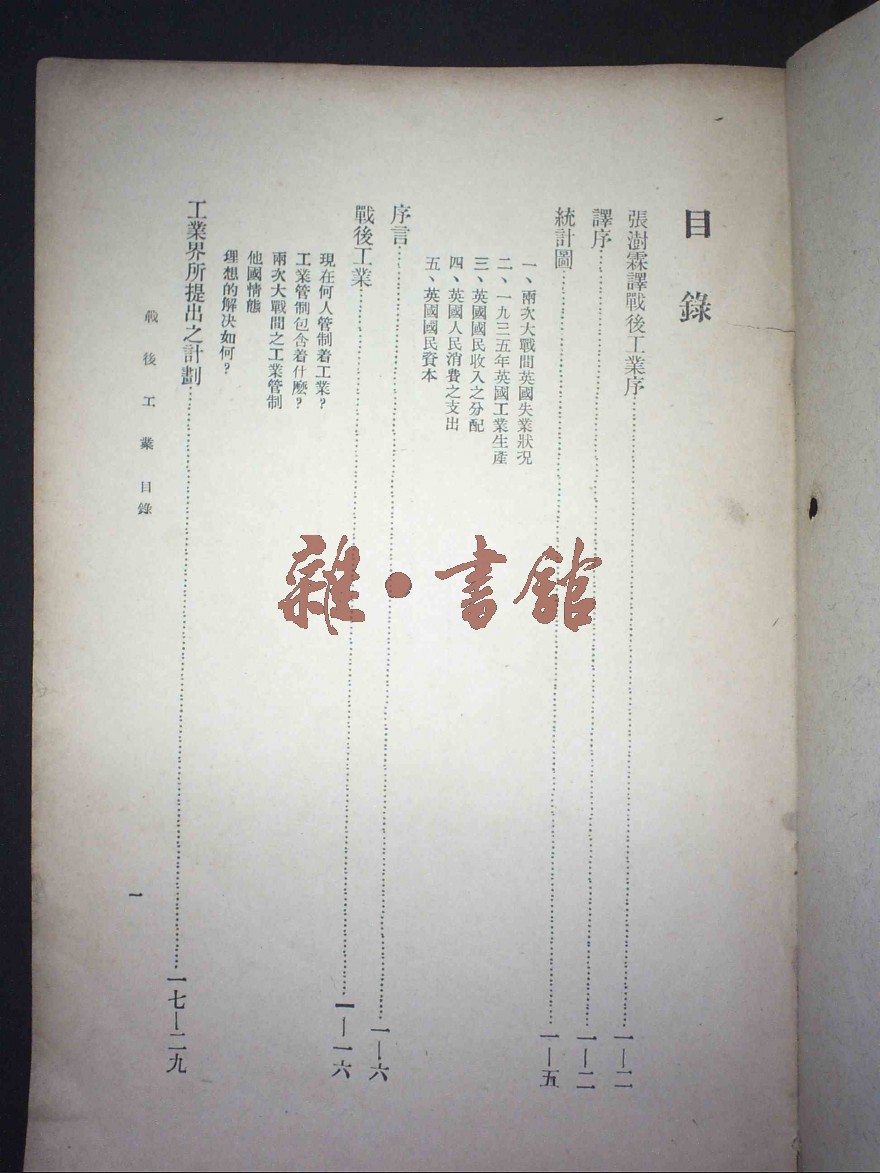 目錄
張澍霖譯戰後工業序……一—二
譯序……一—二
統計圖……一—五
一、兩次大戰間英國失業狀況
二、一九三五年英國工業生產
三、英國國民收入之分配
四、英國人民消費之支出
五、英國國民資本
序言……一—六
戰後工業……一—一六
現在何人管制着工業?
工業管制包含着什麼?
兩次大戰間之工業管制
他國情態
理想的解決如何?
工業界所提出之計劃……一七—二九
戰後工業 目錄
一
雜•書館